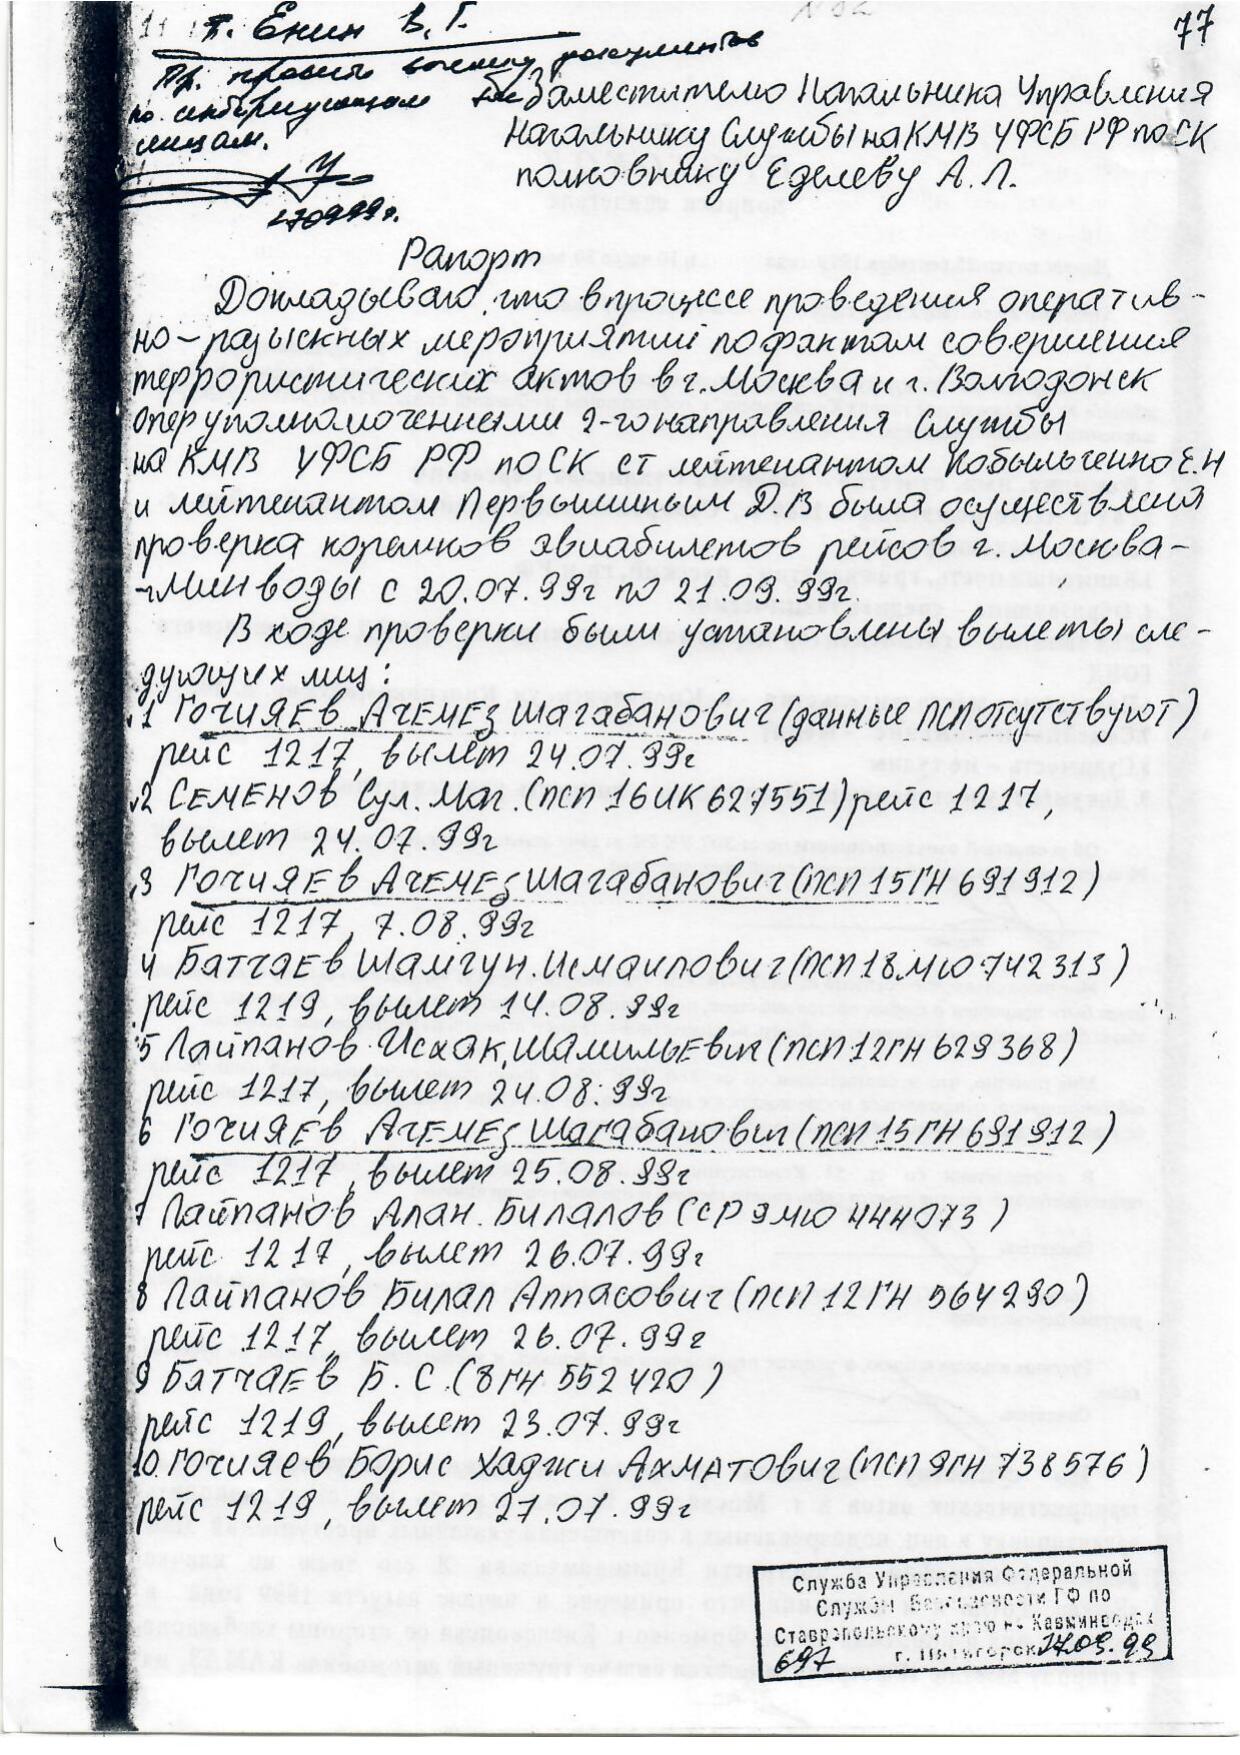 77
т. Енин В.Г.
Пр. провести выемку документов
по интересующим
лицам.
270999г.
Заместителю Начальника Управления
Начальнику Службы на КМВ УФСБ РФ по СК
полковнику Еделеву А.Л.
Рапорт
Докладываю, что в процессе проведения оператив-
но-разыскных мероприятий по фактам совершения
террористических актов в г. Москва и г. Волгодонск
оперуполномоченными 2-го направления Службы
на КМВ УФСБ РФ по СК ст лейтенантом Кобыльченко Е.Н
и лейтенантом Первышиным Д.В была осуществлена
проверка корешков авиабилетов рейсов г. Москва-
-Минводы с 20.07.99г по 21.09.99г.
В ходе проверки были установлены вылеты сле-
дующих лиц:
1 Гочияев Ачемез Шагабанович (данные ПСП отсутствуют)
рейс 1217, вылет 24.07.99г
2 Семенов Сул. Маг. (ПСП 16ИК 627551) рейс 1217,
вылет 24.07.99г
3 Гочияев Ачемез Шагабанович (ПСП 15ГН 691912)
рейс 1217, 7.08.99г
4 Батчаев Шамгун. Исмаилович (ПСП 18МЮ 742313)
рейс 1219, вылет 14.08.99г
5 Лайпанов Исхак Шамильевич (ПСП 12ГН 629368)
рейс 1217, вылет 24.08.99г
6 Гочияев Ачемез Шагабанович (ПСП 15ГН 691912)
рейс 1217, вылет 25.08.99г
7 Лайпанов Алан. Билалов (ссР 9МЮ 444073)
рейс 1217, вылет 26.07.99г
8 Лайпанов Билал Аппасович (ПСП 12ГН 564290)
рейс 1217, вылет 26.07.99г
9 Батчаев Б.С. (8ГН 552420)
рейс 1219, вылет 23.07.99г
10. Гочияев Борис Хаджи Ахматович (ПСП ЯГН 738576)
рейс 1219, вылет 27.07.99г
Служба Управления Федеральной
Службы Безопасности РФ по
Ставропольскому краю на Кавминводах
697 г. Пятигорск 27.09.99